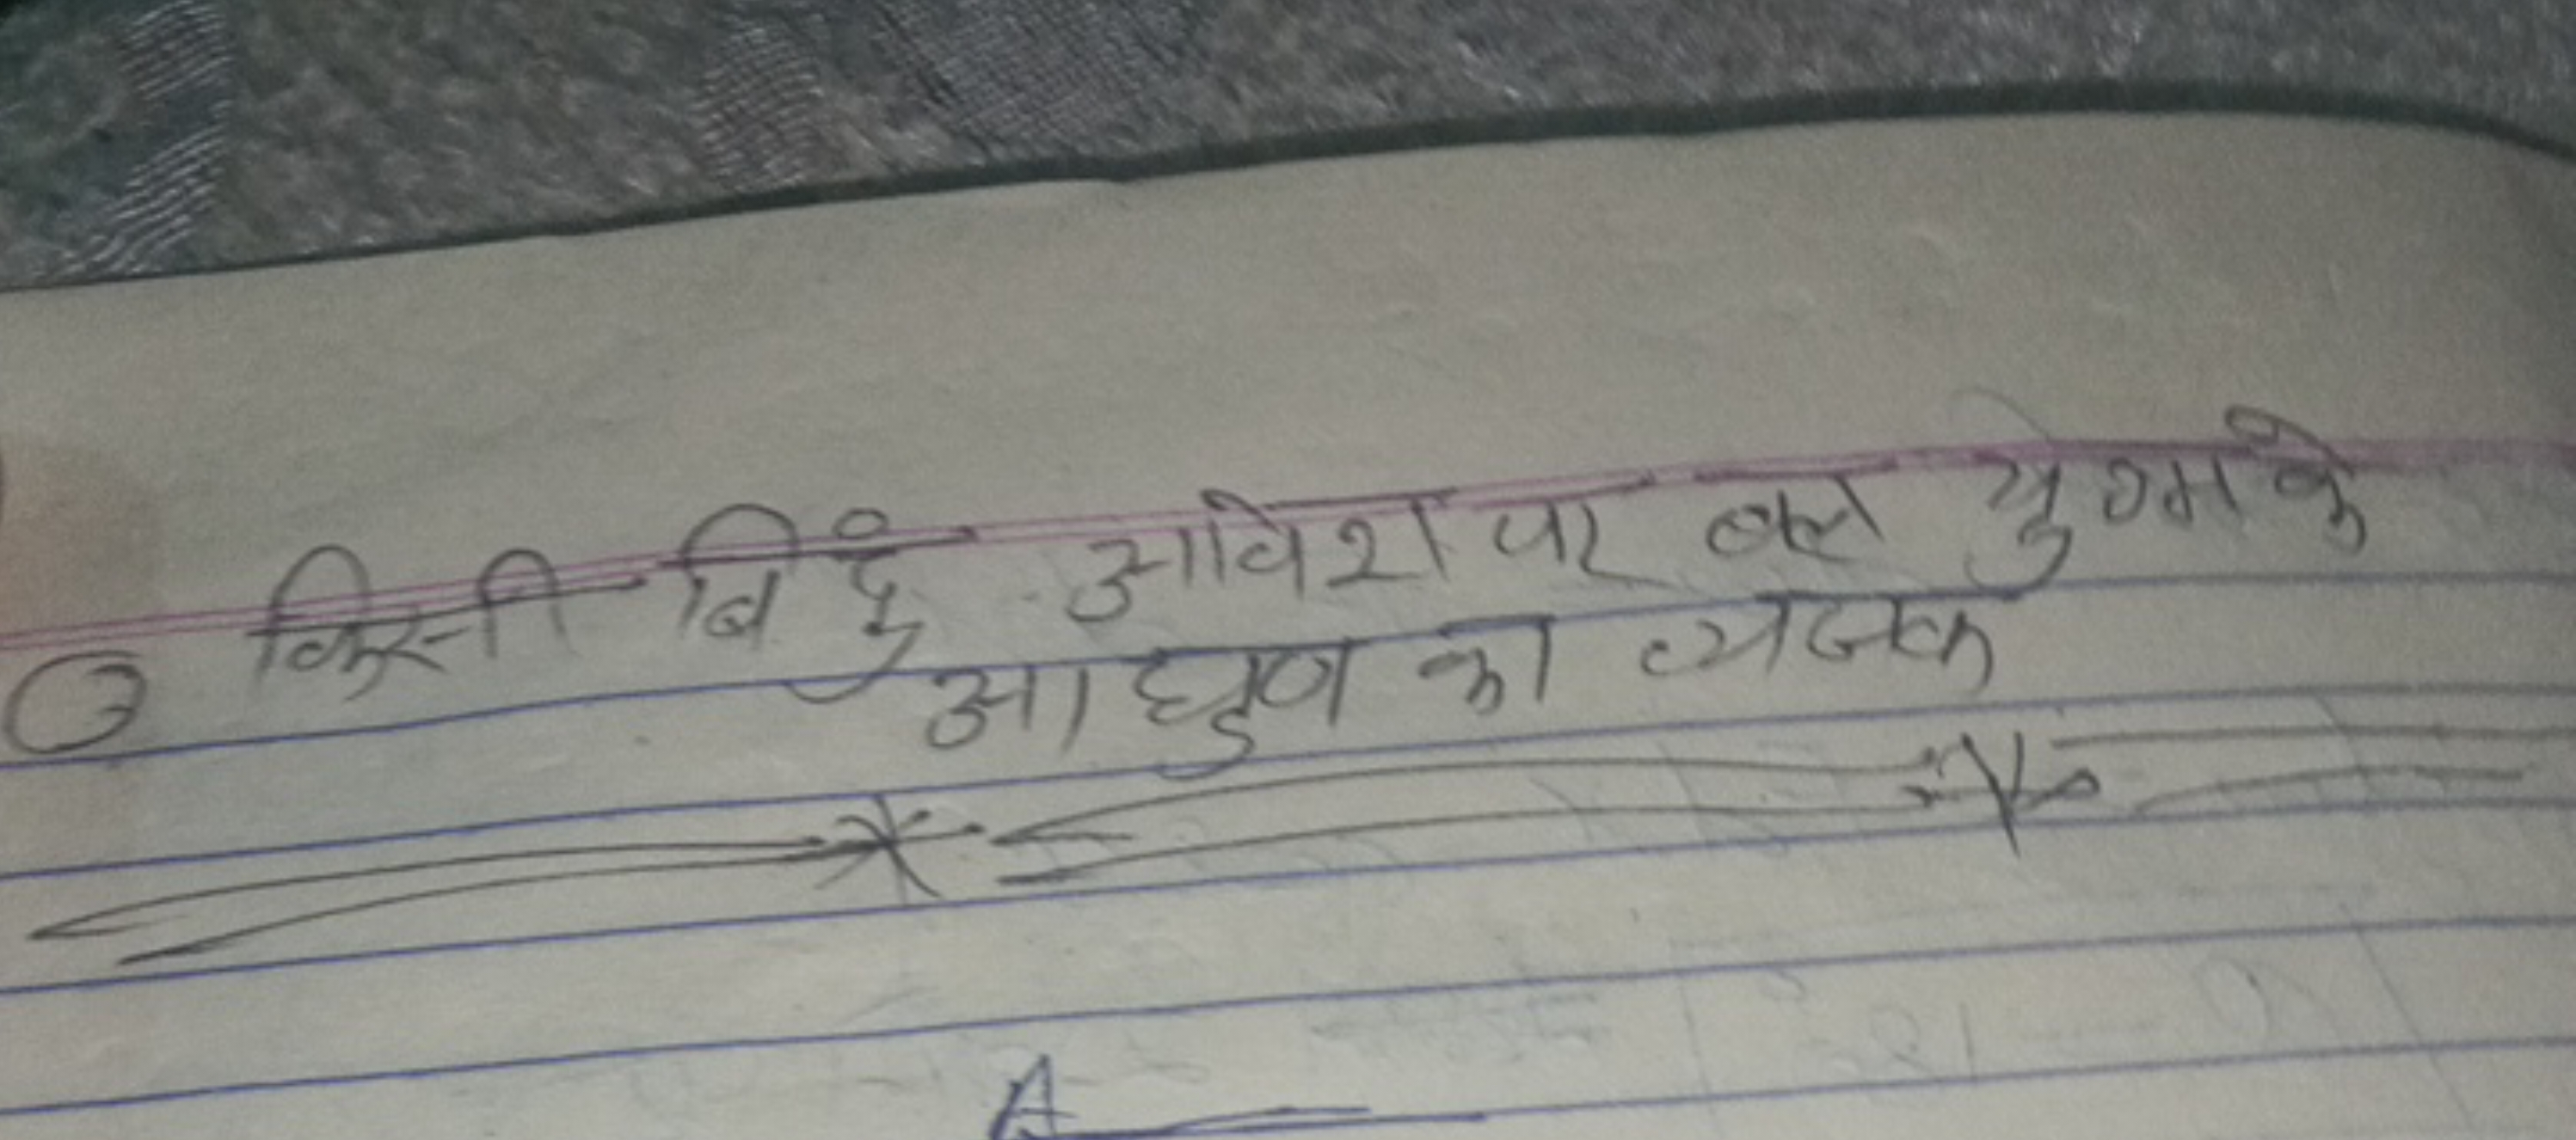 किसी बिंदु आवेश पर बल युग्म के
आघुण का व्यंजक
A